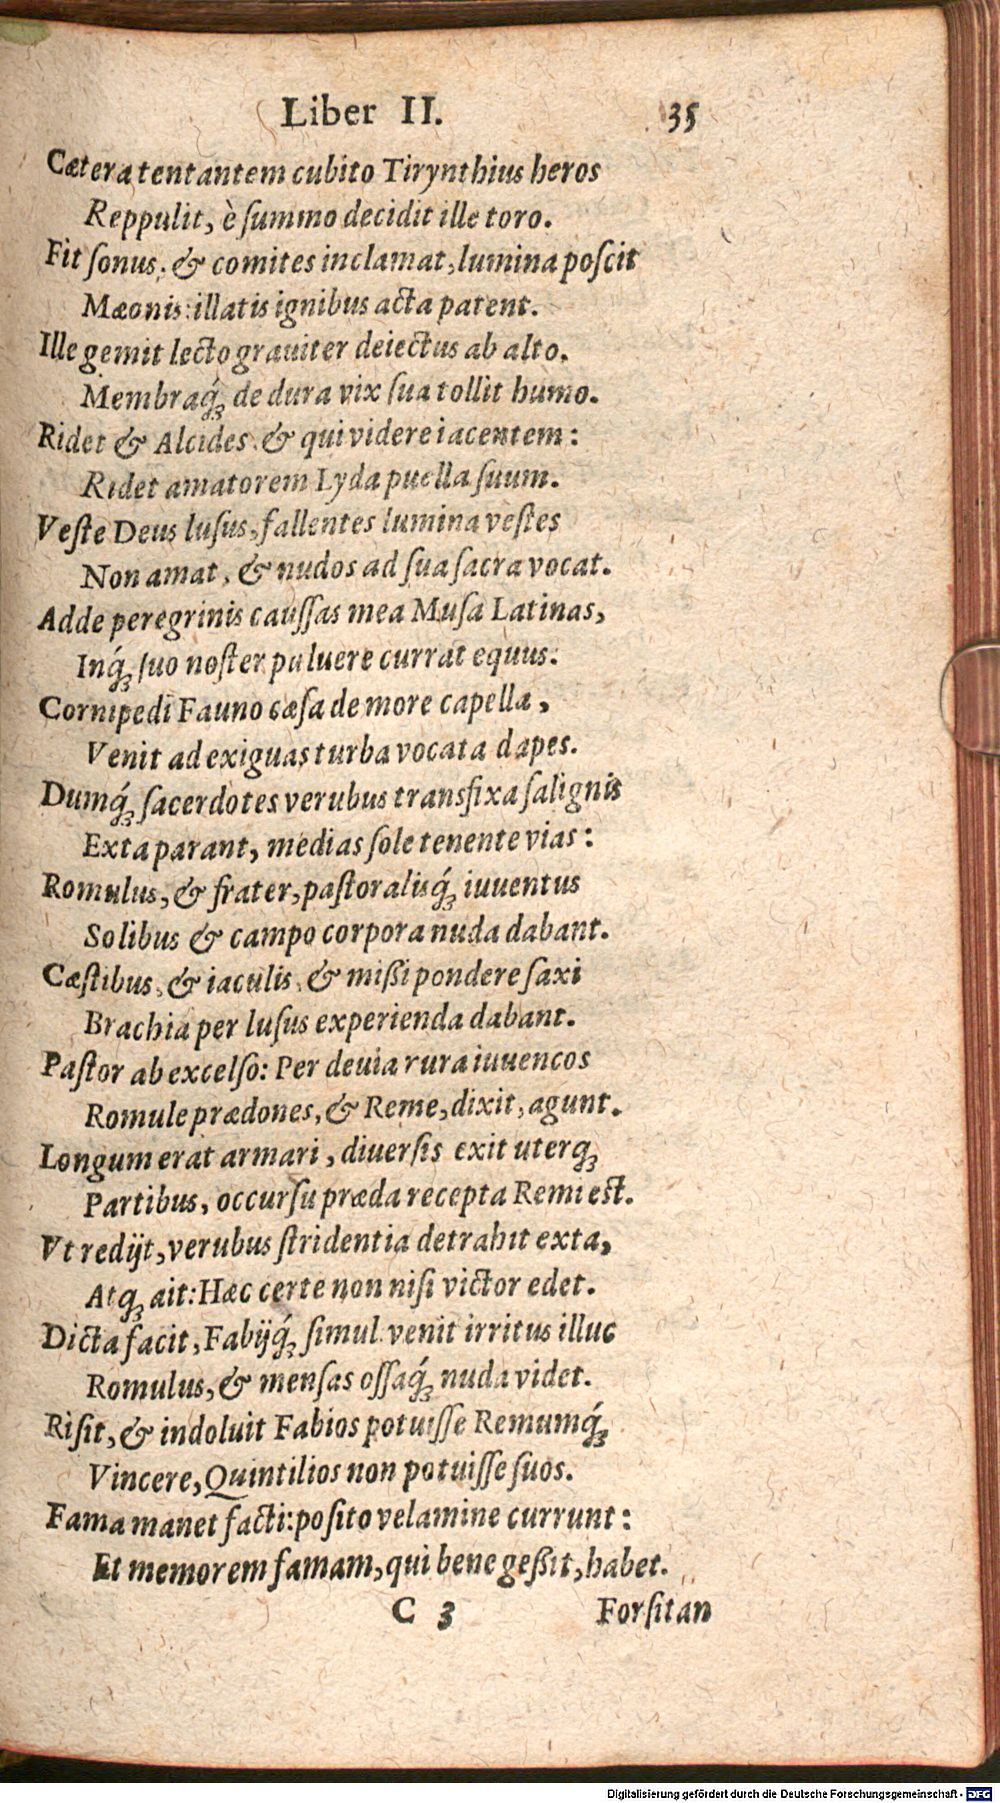 Liber II. 35
Cætera tentantem cubito Tirynthius heros
Reppulit, è ſummo decidit ille toro.
Fit ſonus, & comites inclamat, lumina poſcit
Mæonis: illatis ignibus acta patent.
Ille gemit lecto grauiter deiectus ab alto.
Membraq́ꝫ de dura vix ſua tollit humo.
Ridet & Alcides, & qui videre iacentem:
Ridet amatorem Lyda puella ſuum.
Veſte Deus luſus, fallentes lumina veſtes
Non amat, & nudos ad ſua ſacra vocat.
Adde peregrinis cauſſas mea Muſa Latinas,
Inq́ꝫ ſuo noſter puluere currat equus.
Cornipedi Fauno cæſa de more capella,
Venit ad exiguas turba vocata dapes.
Dumq́ꝫ ſacerdotes verubus transfixa ſalignis
Exta parant, medias ſole tenente vias:
Romulus, & frater, paſtoralisq́ꝫ iuuentus
Solibus & campo corpora nuda dabant.
Cæſtibus, & iaculis, & mißi pondere ſaxi
Brachia per luſus experienda dabant.
Paſtor ab excelſo: Per deuia rura iuuencos
Romule prædones, & Reme, dixit, agunt.
Longum erat armari, diuerſis exit uterqꝫ
Partibus, occurſu præda recepta Remi est.
Vt redijt, verubus ſtridentia detrahit exta,
Atqꝫ ait: Hæc certe non niſi victor edet.
Dicta facit, Fabijq́ꝫ ſimul. venit irritus illuc
Romulus, & menſas oſſaq́ꝫ nuda videt.
Riſit, & indoluit Fabios potuiſſe Remumq́ꝫ
Vincere, Quintilios non potuiſſe ſuos.
Fama manet facti: poſito velamine currunt:
Et memorem famam, qui bene geßit, habet.
C 3 Forſitan
Digitalisierung gefördert durch die Deutsche Forschungsgemeinschaft - DFG